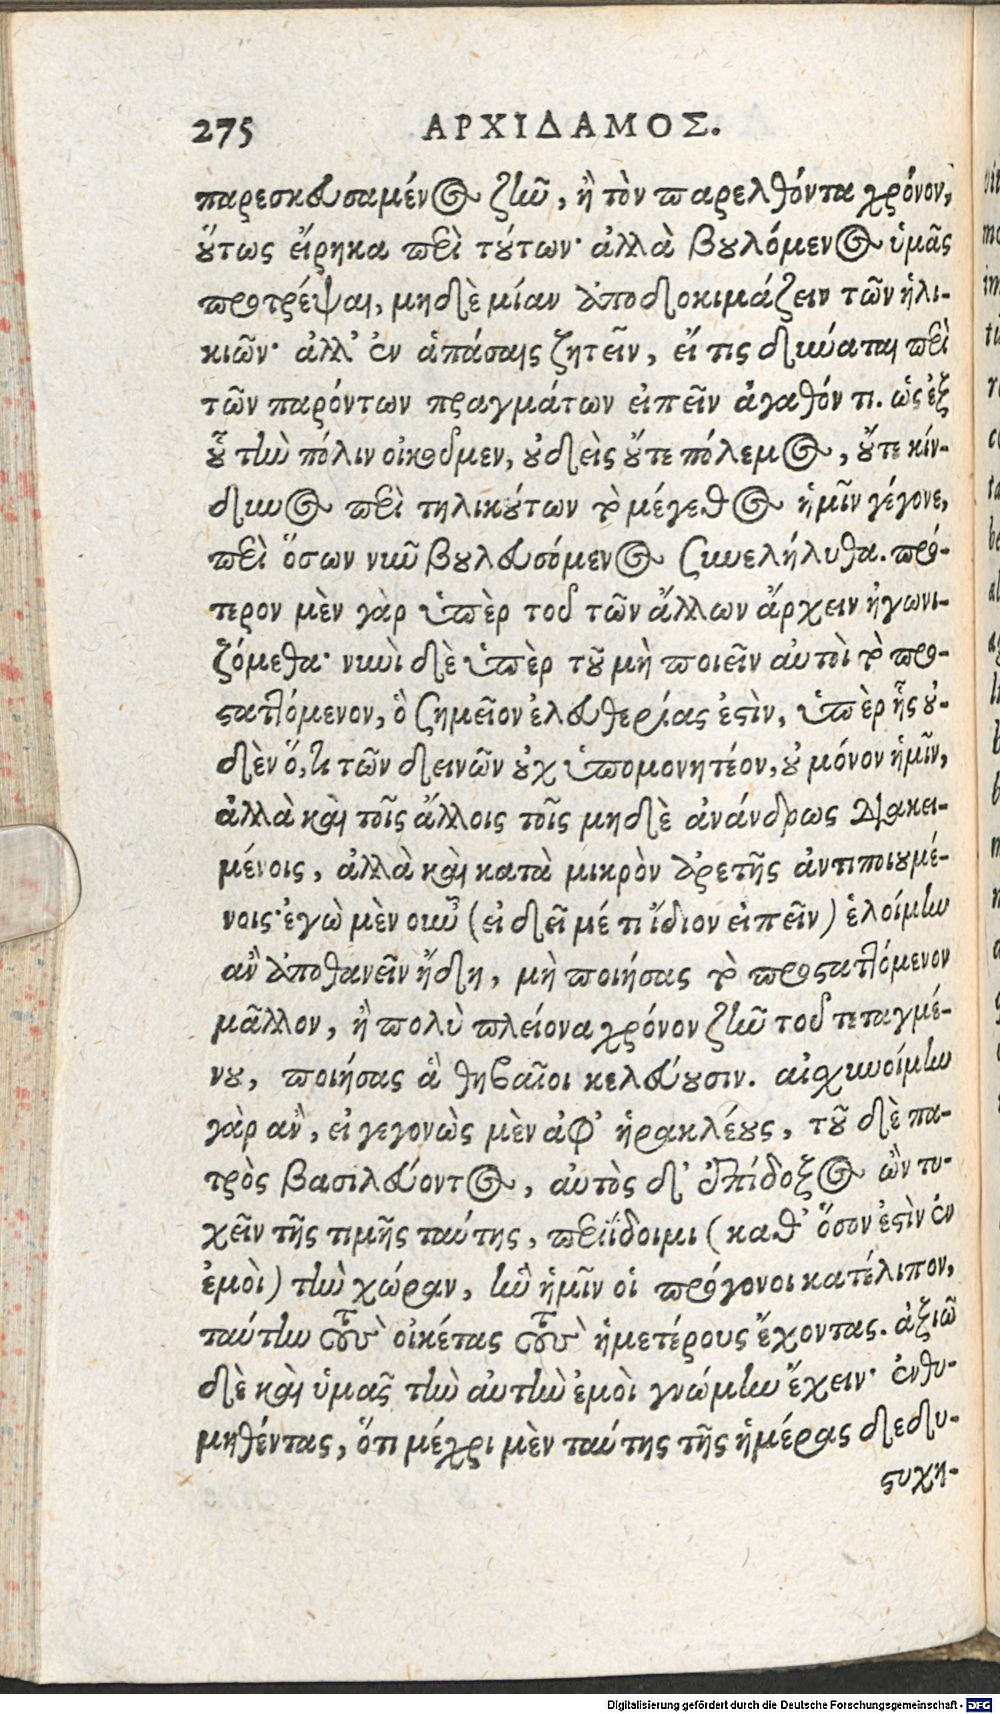 275 ΑΡΧΙΔΑΜΟΣ.
παρεσκευσαμένος ζῆν, ἢ τὸν παρελθόντα χρόνον,
οὕτως εἴρηκα περὶ τούτων· ἀλλὰ βουλόμενος ὑμᾶς
προτρέψαι, μηδὲ μίαν ἀποδοκιμάζειν τῶν ἡλι-
κιῶν· ἀλλ' ἐν ἁπάσαις ζητεῖν, εἴ τις δύναται περὶ
τῶν παρόντων πραγμάτων εἰπεῖν ἀγαθόν τι. ὡς ἐξ
οὗ τὴν πόλιν οἰκοῦμεν, οὐδεὶς οὔτε πόλεμος, οὔτε κίν-
δυνος περὶ τηλικούτων τὸ μέγεθος ἡμῖν γέγονε,
περὶ ὅσων νῦν βουλευσόμενος συνελήλυθα. πρό-
τερον μὲν γὰρ ὑπὲρ τοῦ τῶν ἄλλων ἄρχειν ἠγωνι-
ζόμεθα· νυνὶ δὲ ὑπὲρ τοῦ μὴ ποιεῖν αὐτοὶ τὸ προ-
σταττόμενον, ὃ σημεῖον ἐλευθερίας ἐστὶν, ὑπὲρ ἧς οὐ-
δὲν ὅ,τι τῶν δεινῶν οὐχ ὑπομονητέον, οὐ μόνον ἡμῖν,
ἀλλὰ καὶ τοῖς ἄλλοις τοῖς μηδὲ ἀνάνδρως διακει-
μένοις, ἀλλὰ καὶ κατὰ μικρὸν ἀρετῆς ἀντιποιουμέ-
νοις· ἐγὼ μὲν οὖν (εἰ δεῖ μέ τι ἴδιον εἰπεῖν) ἑλοίμην
ἂν ἀποθανεῖν ἤδη, μὴ ποιήσας τὸ προσταττόμενον
μᾶλλον, ἢ πολὺ πλείονα χρόνον ζῆν τοῦ τεταγμέ-
νου, ποιήσας ἃ θηβαῖοι κελεύουσιν. αἰσχυνοίμην
γὰρ ἂν, εἰ γεγονὼς μὲν ἀφ' ἡρακλέους, τοῦ δὲ πα-
τρὸς βασιλεύοντος, αὐτὸς δ' ἐπίδοξος ὢν τυ-
χεῖν τῆς τιμῆς ταύτης, περιΐδοιμι (καθ' ὅσον ἐστὶν ἐν
ἐμοὶ) τὴν χώραν, ἣν ἡμῖν οἱ πρόγονοι κατέλιπον,
ταύτην τοὺς οἰκέτας τοὺς ἡμετέρους ἔχοντας. ἀξιῶ
δὲ καὶ ὑμᾶς τὴν αὐτὴν ἐμοὶ γνώμην ἔχειν· ἐνθυ-
μηθέντας, ὅτι μέχρι μὲν ταύτης τῆς ἡμέρας δεδυ-
στυχη-
Digitalisierung gefördert durch die Deutsche Forschungsgemeinschaft - DFG